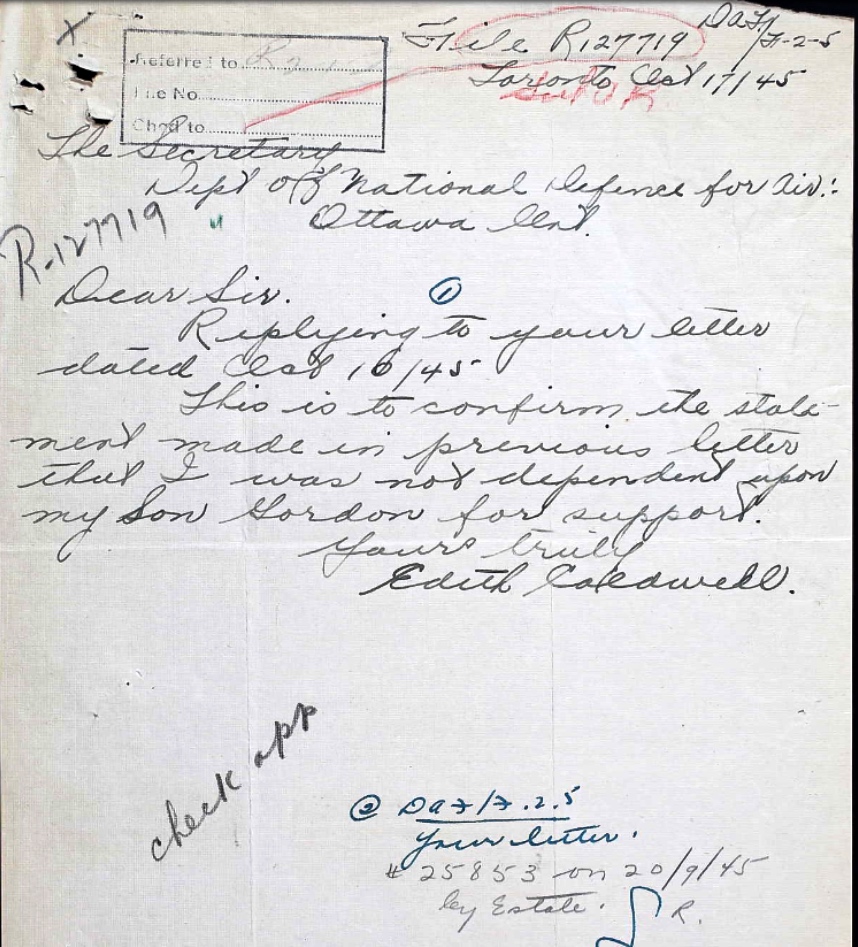 File R127719
DaF/
F-2-5
Toronto Oct 17/45
Referred to
File No.
Chgd to
The Secretary
Dept of National Defence for Air:
Ottawa Ont.
R-127719
Dear Sir.
①
Replying to your letter
dated Oct 10/45
This is to confirm the state-
ment made in previous letter
that I was not dependent upon
my Son Gordon for support.
Yours truly
Edith Caldwell.
check app
② DaF/F.2.5
Your letter.
# 25853 on 20/9/45
by Estate.
R.